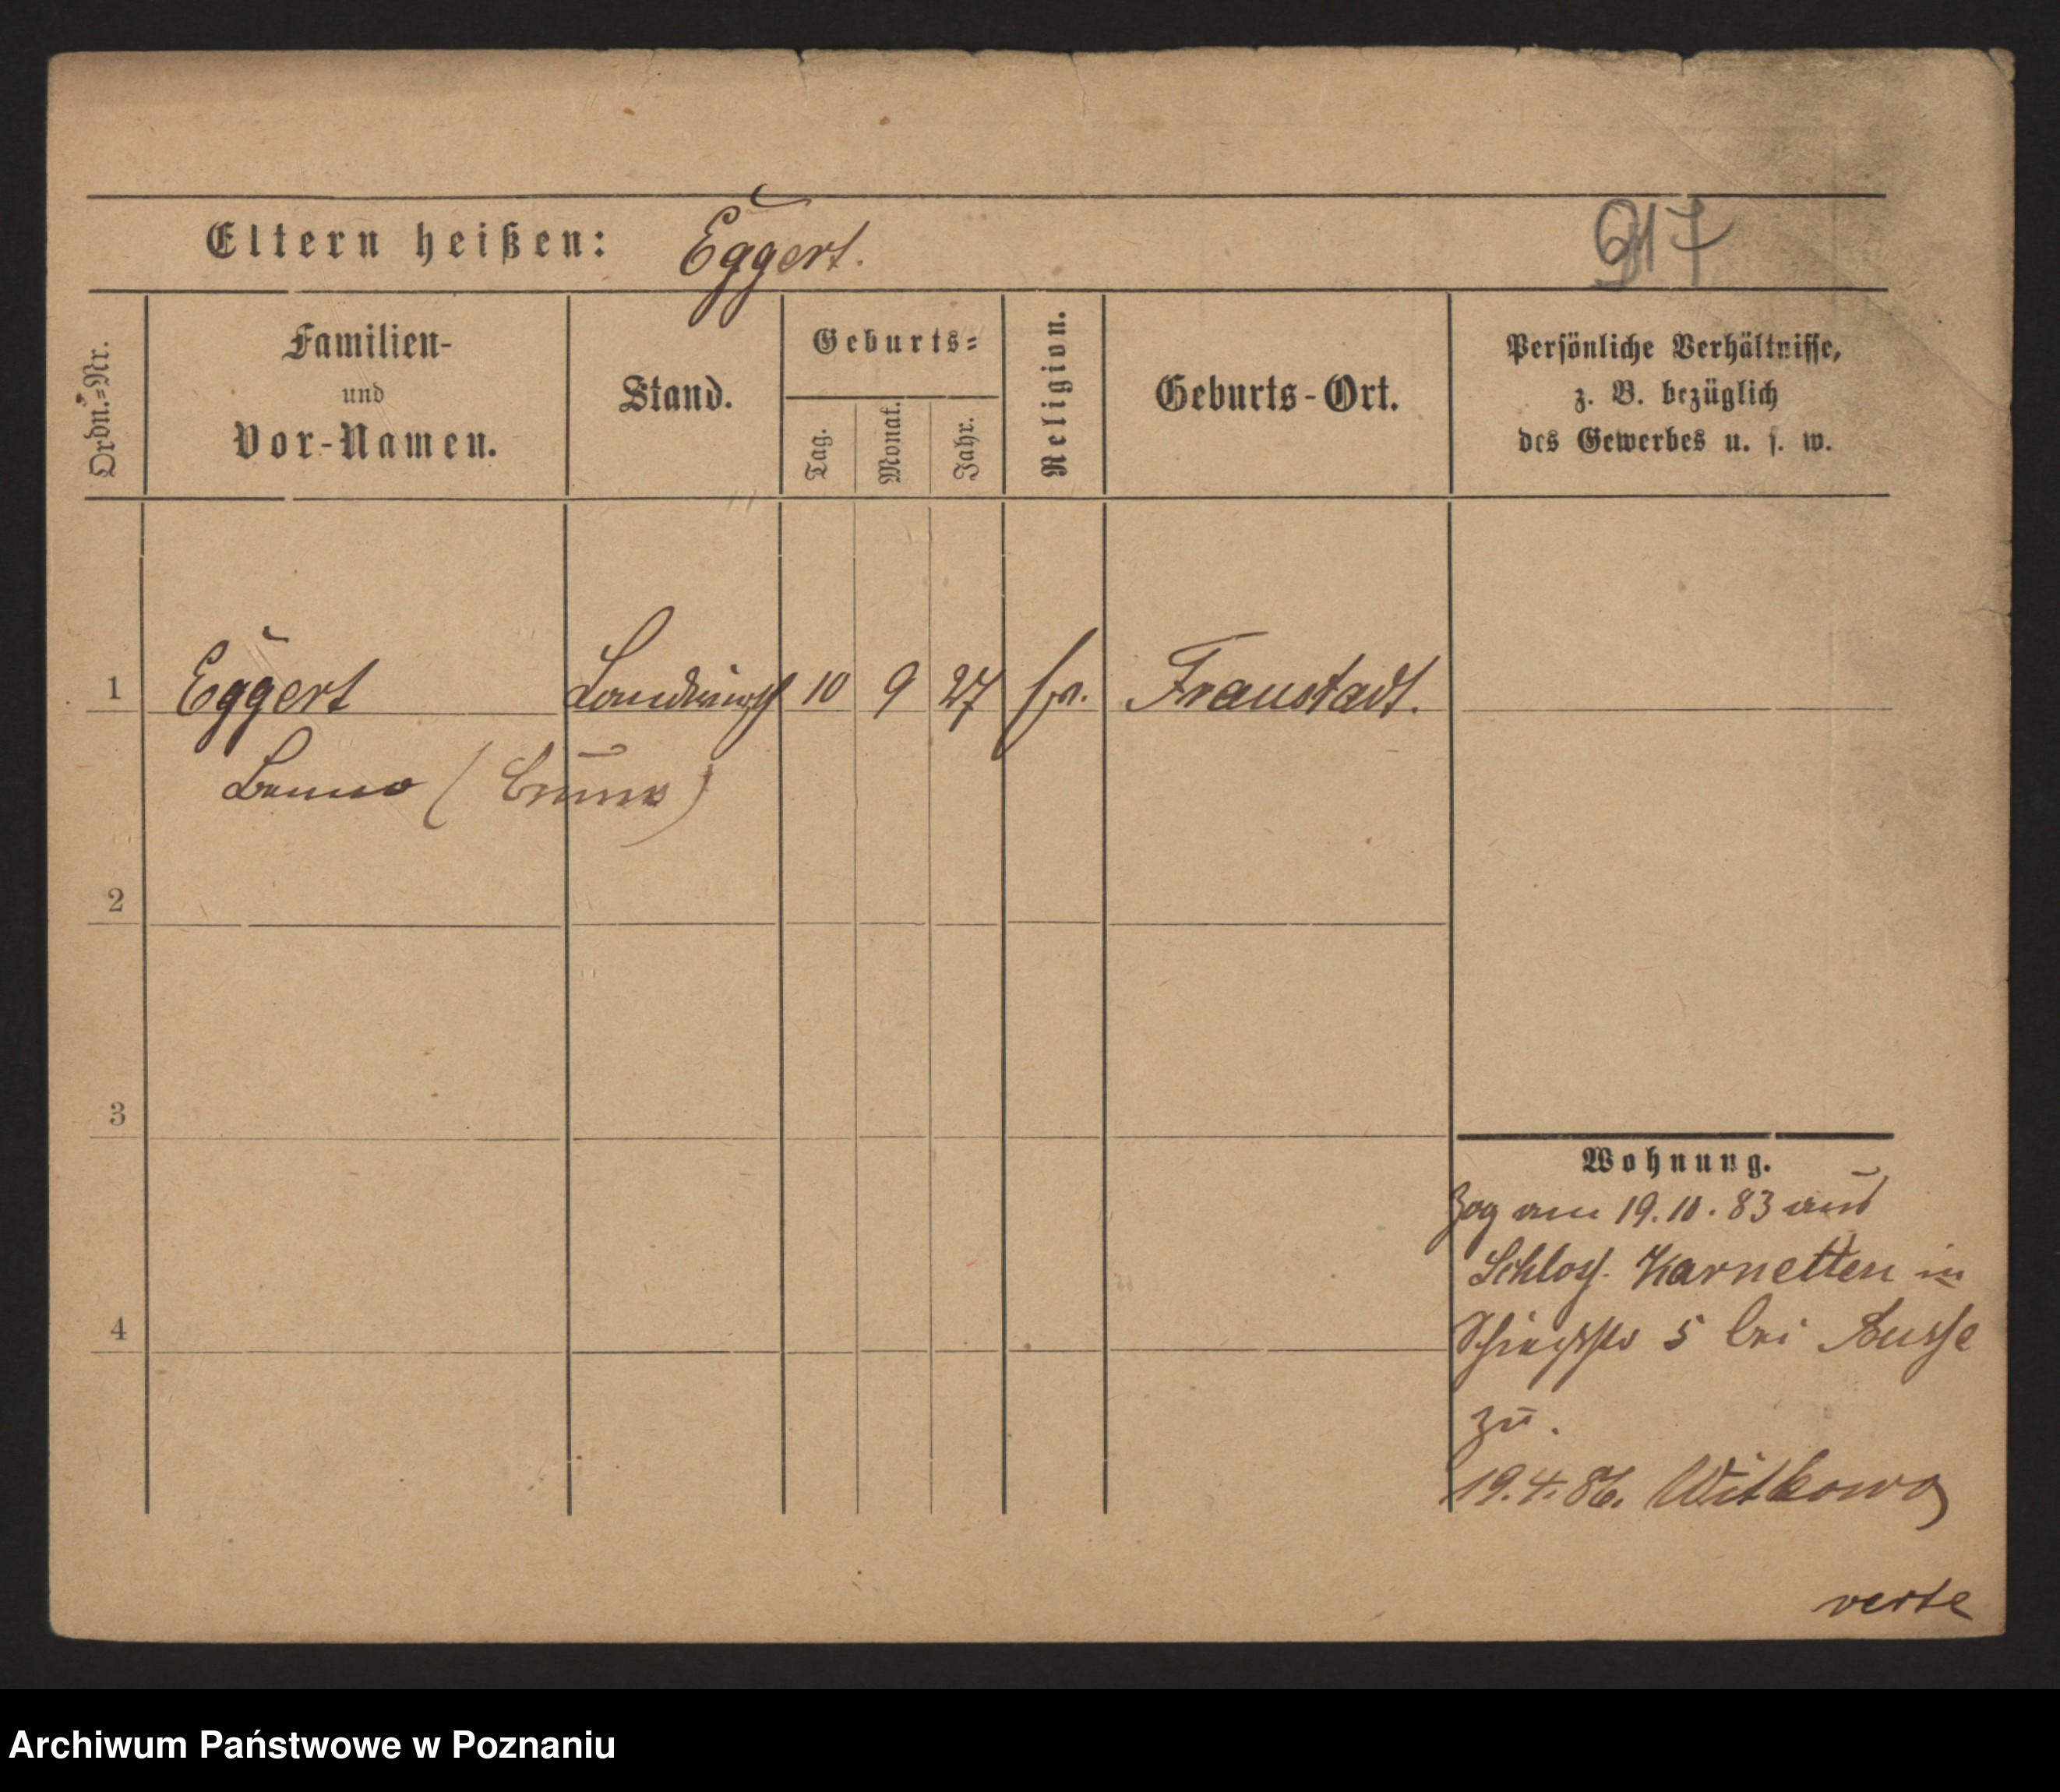 Eltern heißen: Eggert. 917
Ordn.-Nr.
Familien-
und
Vor-Namen.
Stand.
Geburts-
Tag.
Monat.
Jahr.
Religion.
Geburts-Ort.
Persönliche Verhältnisse,
z. B. bezüglich
des Gewerbes u. s. w.
1 Eggert Landwirth 10 9 27 Fraustadt.
Benno (Bruno)
2
3
4
Wohnung.
Zog am 19.10.83 aus
Schloß. Karnetten in
5 bei
zu.
19.4.86. Witkowo
verte
Archiwum Państwowe w Poznaniu